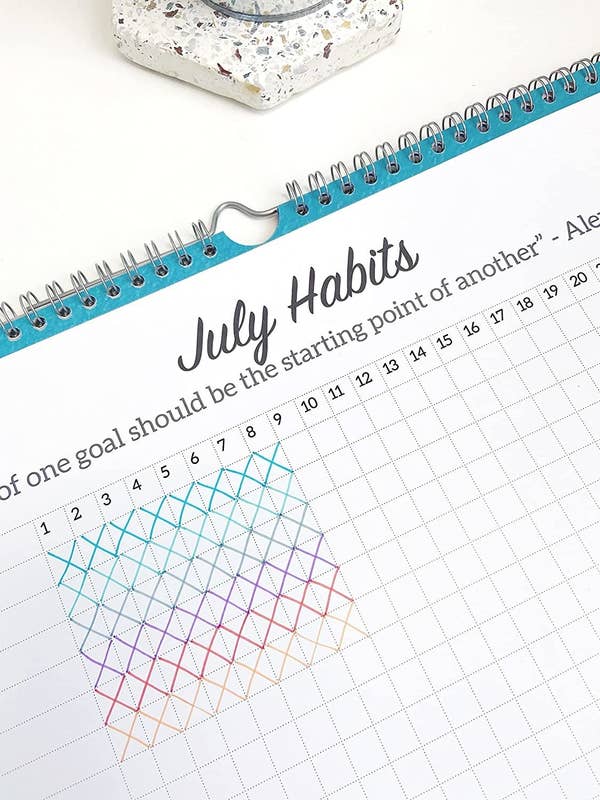 July Habits
of one goal should be the starting point of another” -
1 2 3 4 5 6 7 8 9 10 11 12 13 14 15 16 17 18 19 20